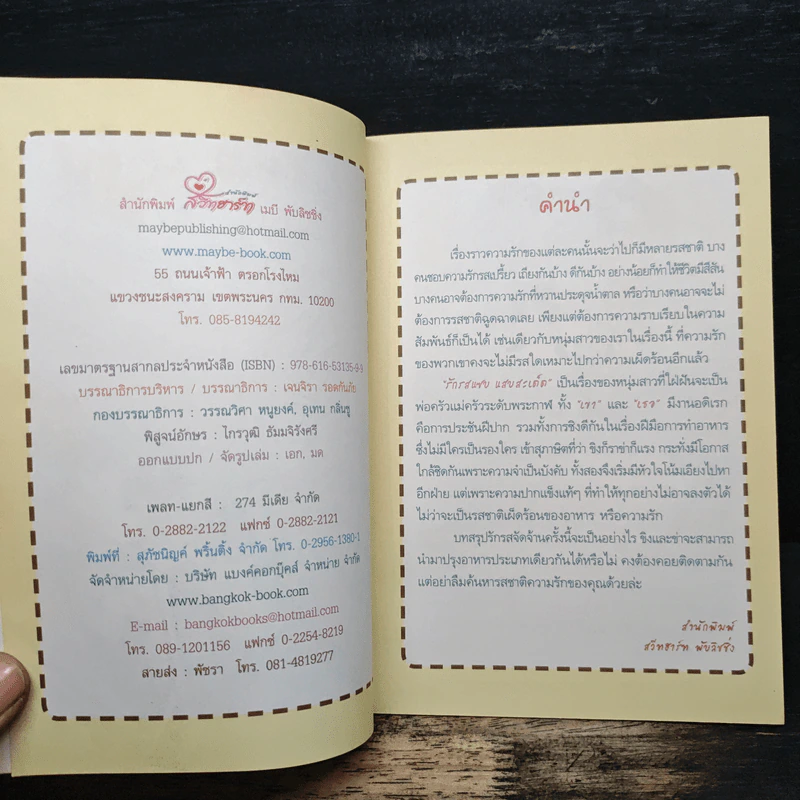 สำนักพิมพ์ สำนักพิมพ์ สวีทฮาร์ท เมบี พับลิชชิ่ง
maybepublishing@hotmail.com
www.maybe-book.com
55 ถนนเจ้าฟ้า ตรอกโรงไหม
แขวงชนะสงคราม เขตพระนคร กทม. 10200
โทร. 085-8194242
เลขมาตรฐานสากลประจำหนังสือ (ISBN) : 978-616-53135-9-9
บรรณาธิการบริหาร / บรรณาธิการ : เจนจิรา รอดกันภัย
กองบรรณาธิการ : วรรณวิศา หนูยงค์, อุเทน กลิ่นชู
พิสูจน์อักษร : ไกรวุฒิ ธัมมจิรังศรี
ออกแบบปก / จัดรูปเล่ม : เอก, มด
เพลท-แยกสี : 274 มีเดีย จำกัด
โทร. 0-2882-2122 แฟกซ์ 0-2882-2121
พิมพ์ที่ : สุภัชนิญค์ พริ้นติ้ง จำกัด โทร. 0-2956-1380-1
จัดจำหน่ายโดย : บริษัท แบงค์คอกบุ๊คส์ จำหน่าย จำกัด
www.bangkok-book.com
E-mail : bangkokbooks@hotmail.com
โทร. 089-1201156 แฟกซ์ 0-2254-8219
สายส่ง : พัชรา โทร. 081-4819277
คำนำ
เรื่องราวความรักของแต่ละคนนั้นจะว่าไปก็มีหลายรสชาติ บาง
คนชอบความรักรสเปรี้ยว เถียงกันบ้าง ตีกันบ้าง อย่างน้อยก็ทำให้ชีวิตมีสีสัน
บางคนอาจต้องการความรักที่หวานประดุจน้ำตาล หรือว่าบางคนอาจจะไม่
ต้องการรสชาติฉูดฉาดเลย เพียงแต่ต้องการความราบเรียบในความ
สัมพันธ์ก็เป็นได้ เช่นเดียวกับหนุ่มสาวของเราในเรื่องนี้ ที่ความรัก
ของพวกเขาคงจะไม่มีรสใดเหมาะไปกว่าความเผ็ดร้อนอีกแล้ว
"กักรสแซบ แสบสะเด็ด" เป็นเรื่องของหนุ่มสาวที่ใฝ่ฝันจะเป็น
พ่อครัวแม่ครัวระดับพระกาฬ ทั้ง "เขา" และ "เธอ" มีงานอดิเรก
คือการประชันฝีปาก รวมทั้งการชิงดีกันในเรื่องฝีมือการทำอาหาร
ซึ่งไม่มีใครเป็นรองใคร เข้าสุภาษิตที่ว่า ขิงก็ราข่าก็แรง กระทั่งมีโอกาส
ใกล้ชิดกันเพราะความจำเป็นบังคับ ทั้งสองจึงเริ่มมีหัวใจโน้มเอียงไปหา
อีกฝ่าย แต่เพราะความปากแข็งแท้ๆ ที่ทำให้ทุกอย่างไม่อาจลงตัวได้
ไม่ว่าจะเป็นรสชาติเผ็ดร้อนของอาหาร หรือความรัก
บทสรุปรักรสจัดจ้านครั้งนี้จะเป็นอย่างไร ขิงและข่าจะสามารถ
นำมาปรุงอาหารประเภทเดียวกันได้หรือไม่ คงต้องคอยติดตามกัน
แต่อย่าลืมค้นหารสชาติความรักของคุณด้วยล่ะ
สำนักพิมพ์
สวีทฮาร์ท พับลิชชิ่ง